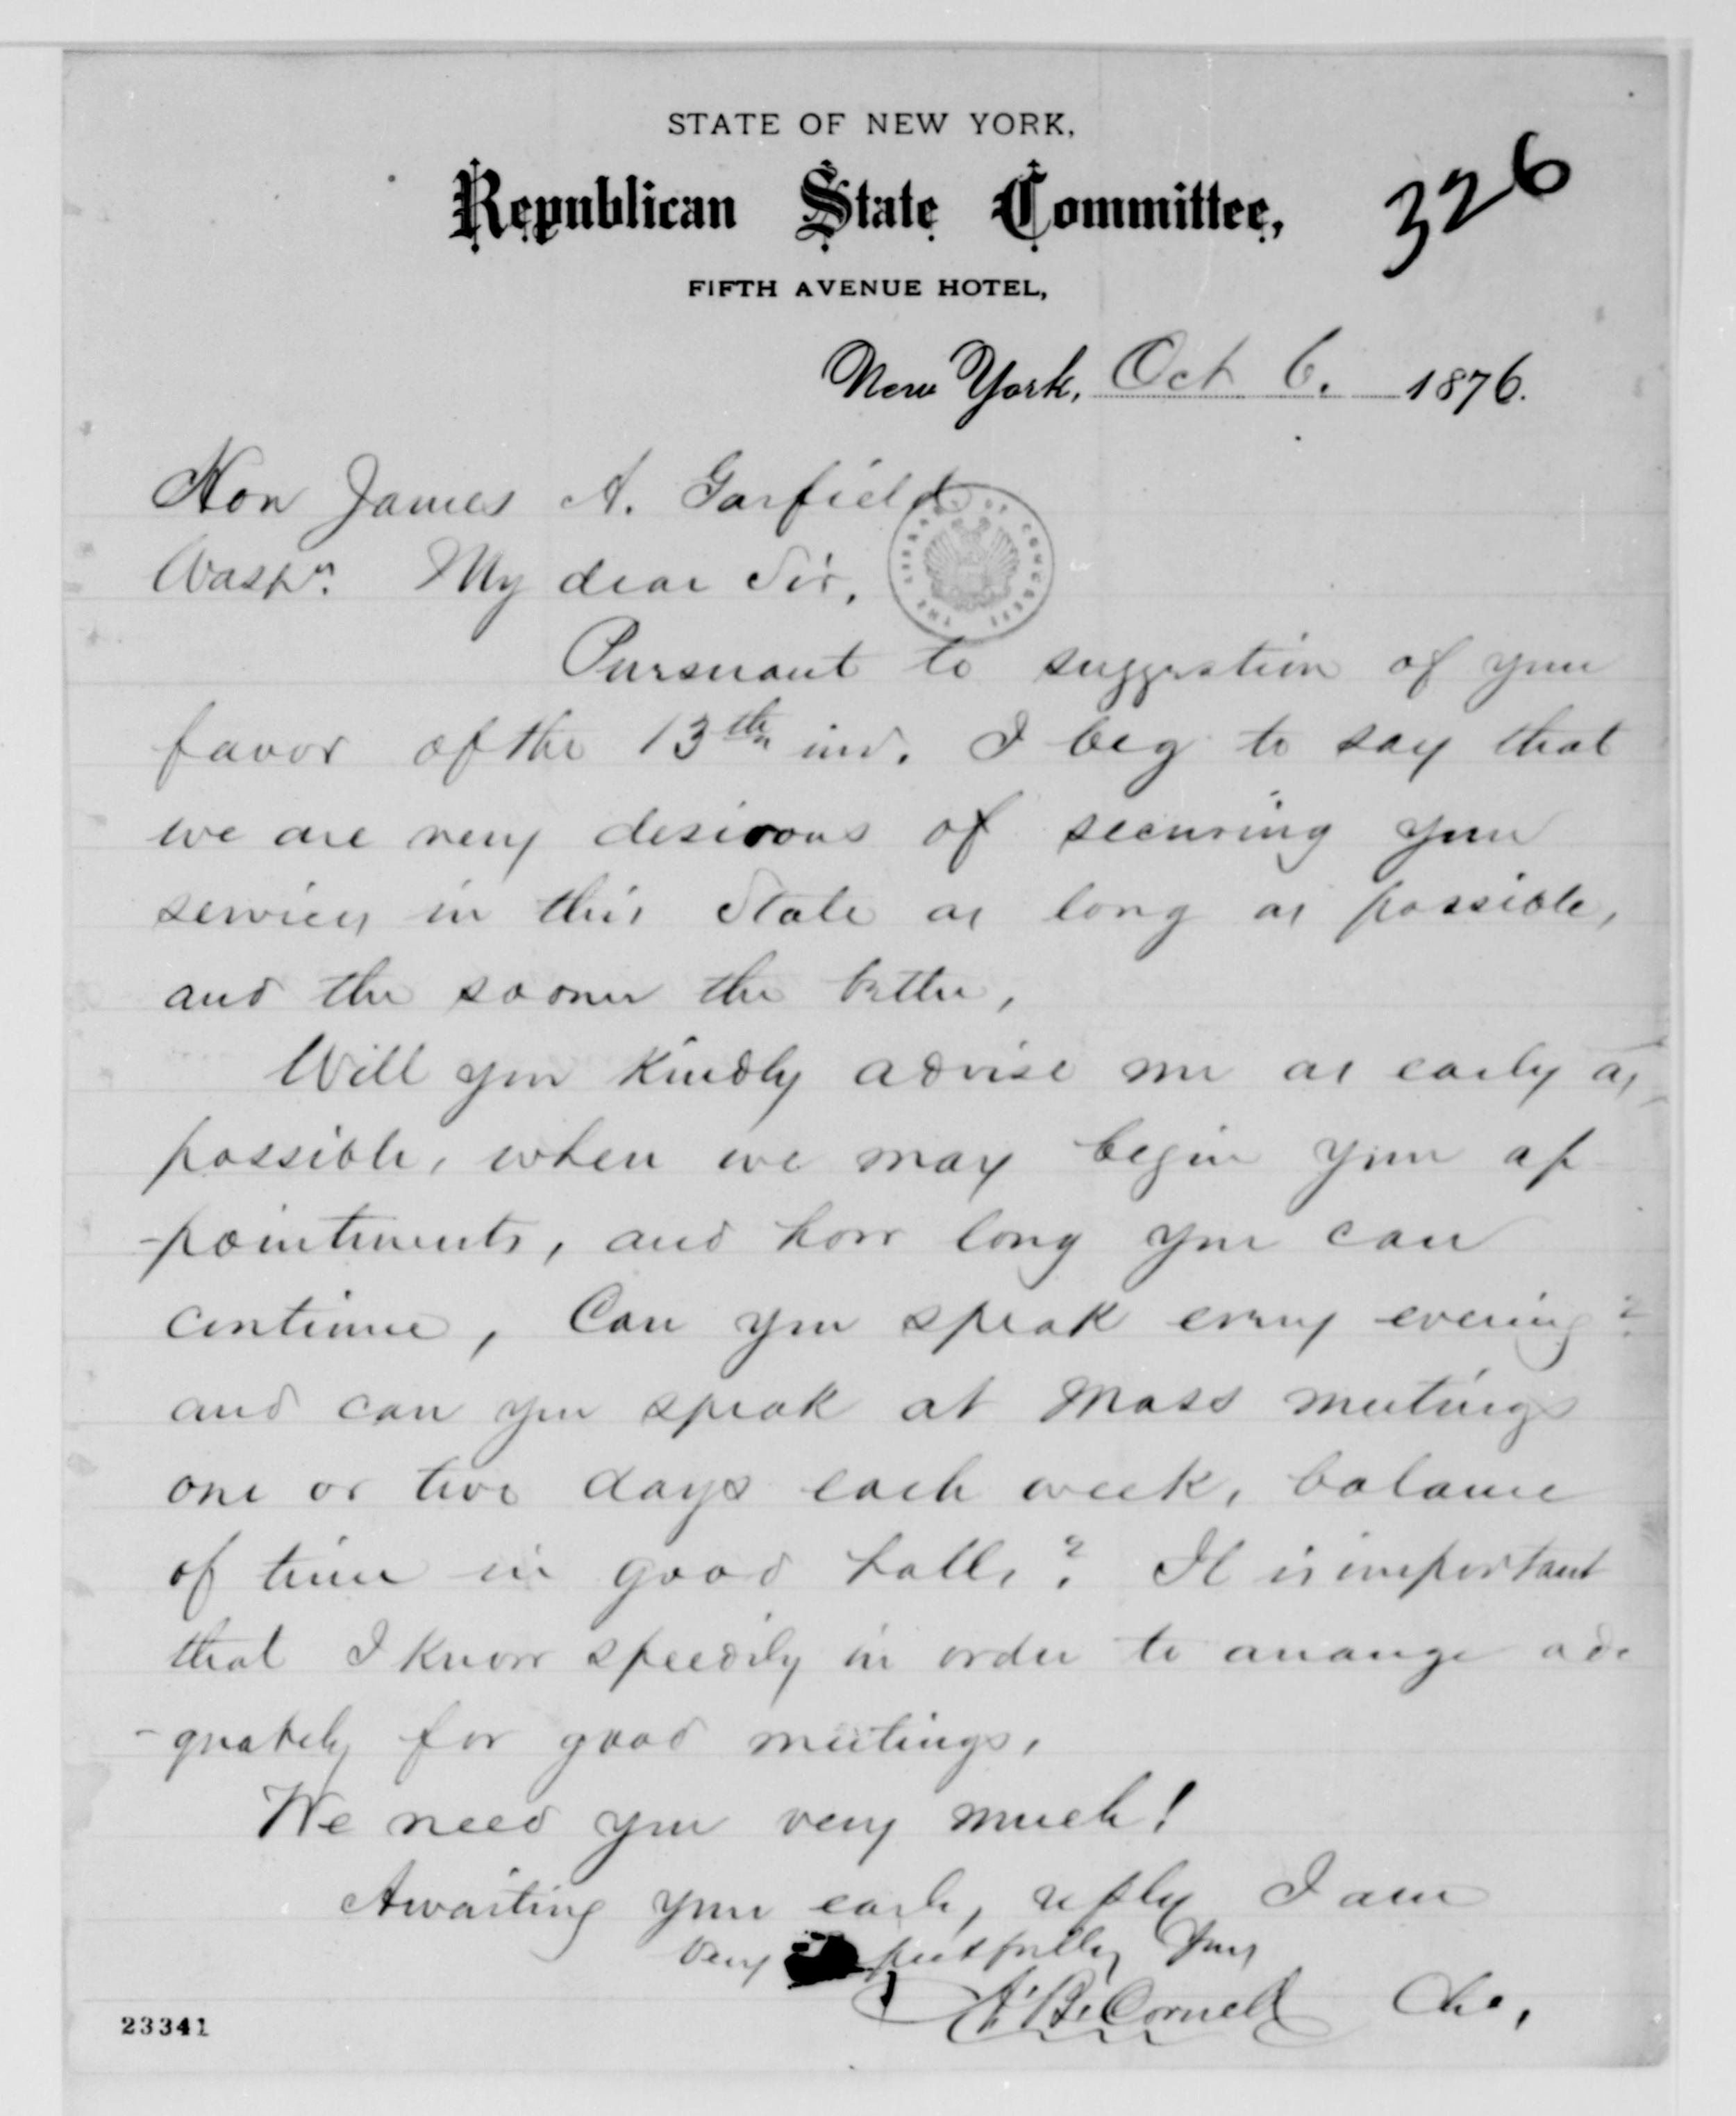 STATE OF NEW YORK,
Republican State Committee,
326
FIFTH AVENUE HOTEL,
New York, Oct 6. 1876.
Hon James A. Garfield
Washn. My dear Sir,
THE LIBRARY OF CONGRESS
Pursuant to suggestion of your
favor of the 13th ins. I beg to say that
we are very desirous of securing your
services in this State as long as possible,
and the sooner the better,
Will you Kindly advise me as early as
possible, when we may begin your ap
-pointments, and how long you can
continue, Can you speak every evening?
and can you speak at Mass meetings
one or two days each week, balance
of time in good halls? It is important
that I Know speedily in order to arrange ade
-quately for good meetings,
We need you very much!
Awaiting your early reply I am
Very pectfully Yours
A. B. Cornell Chn,
23341